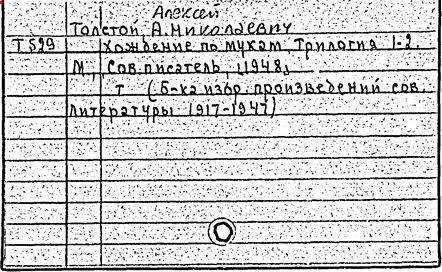 Алексей
Толстой, А. Николаевич
Т 529 Хождение по мукам. Трилогия 1-2.
М., Сов. писатель, [1948]
т (Б-ка избр. произведений сов.
литературы 1917-1947)